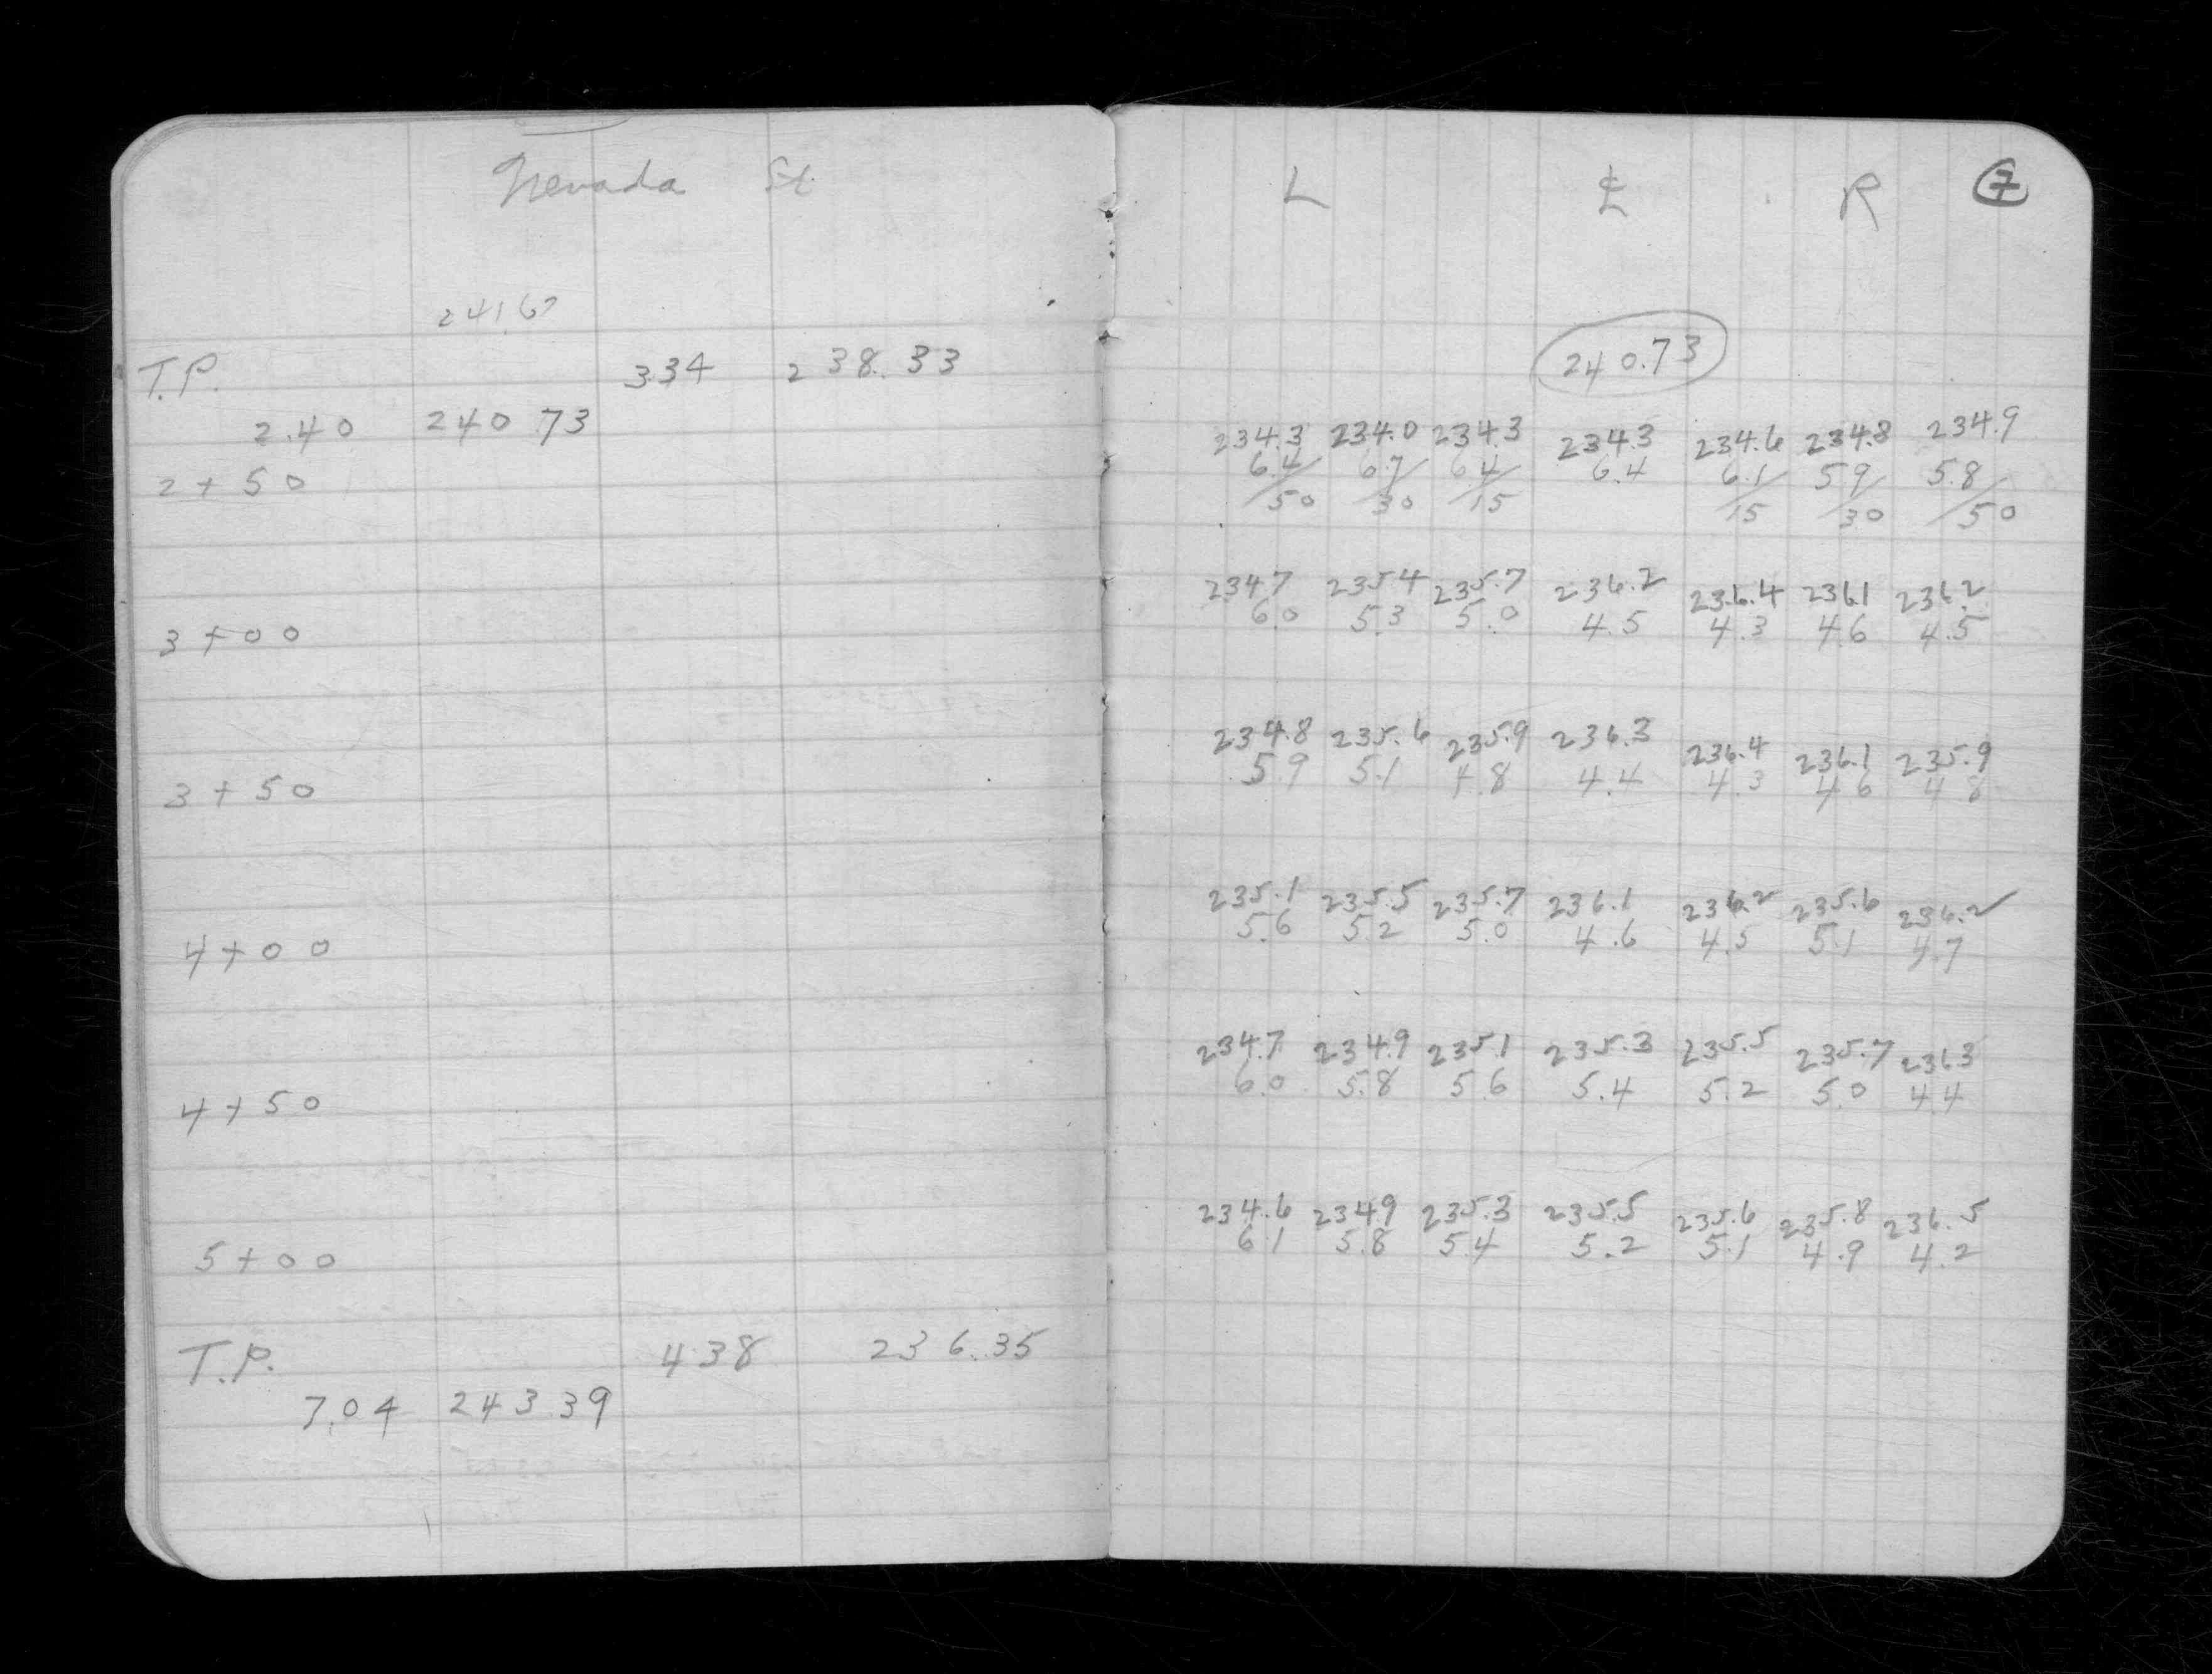 Nevada St.
241.67
T.P. 3.34 238.33
2.40 240.73
2+50
3+00
3+50
4+00
4+50
5+00
T.P. 4.38 236.35
7.04 243.39
L ℄ R 7
240.73
234.3 234.0 234.3 234.3 234.6 234.8 234.9
6.4/50 6.7/30 6.4/15 6.4 6.1/15 5.9/30 5.8/50
234.7 235.4 235.7 236.2 236.4 236.1 236.2
6.0 5.3 5.0 4.5 4.3 4.6 4.5
234.8 235.6 235.9 236.3 236.4 236.1 235.9
5.9 5.1 4.8 4.4 4.3 4.6 4.8
235.1 235.5 235.7 236.1 236.2 235.6 236.2
5.6 5.2 5.0 4.6 4.5 5.1 4.7
234.7 234.9 235.1 235.3 235.5 235.7 236.3
6.0 5.8 5.6 5.4 5.2 5.0 4.4
234.6 234.9 235.3 235.5 235.6 235.8 236.5
6.1 5.8 5.4 5.2 5.1 4.9 4.2